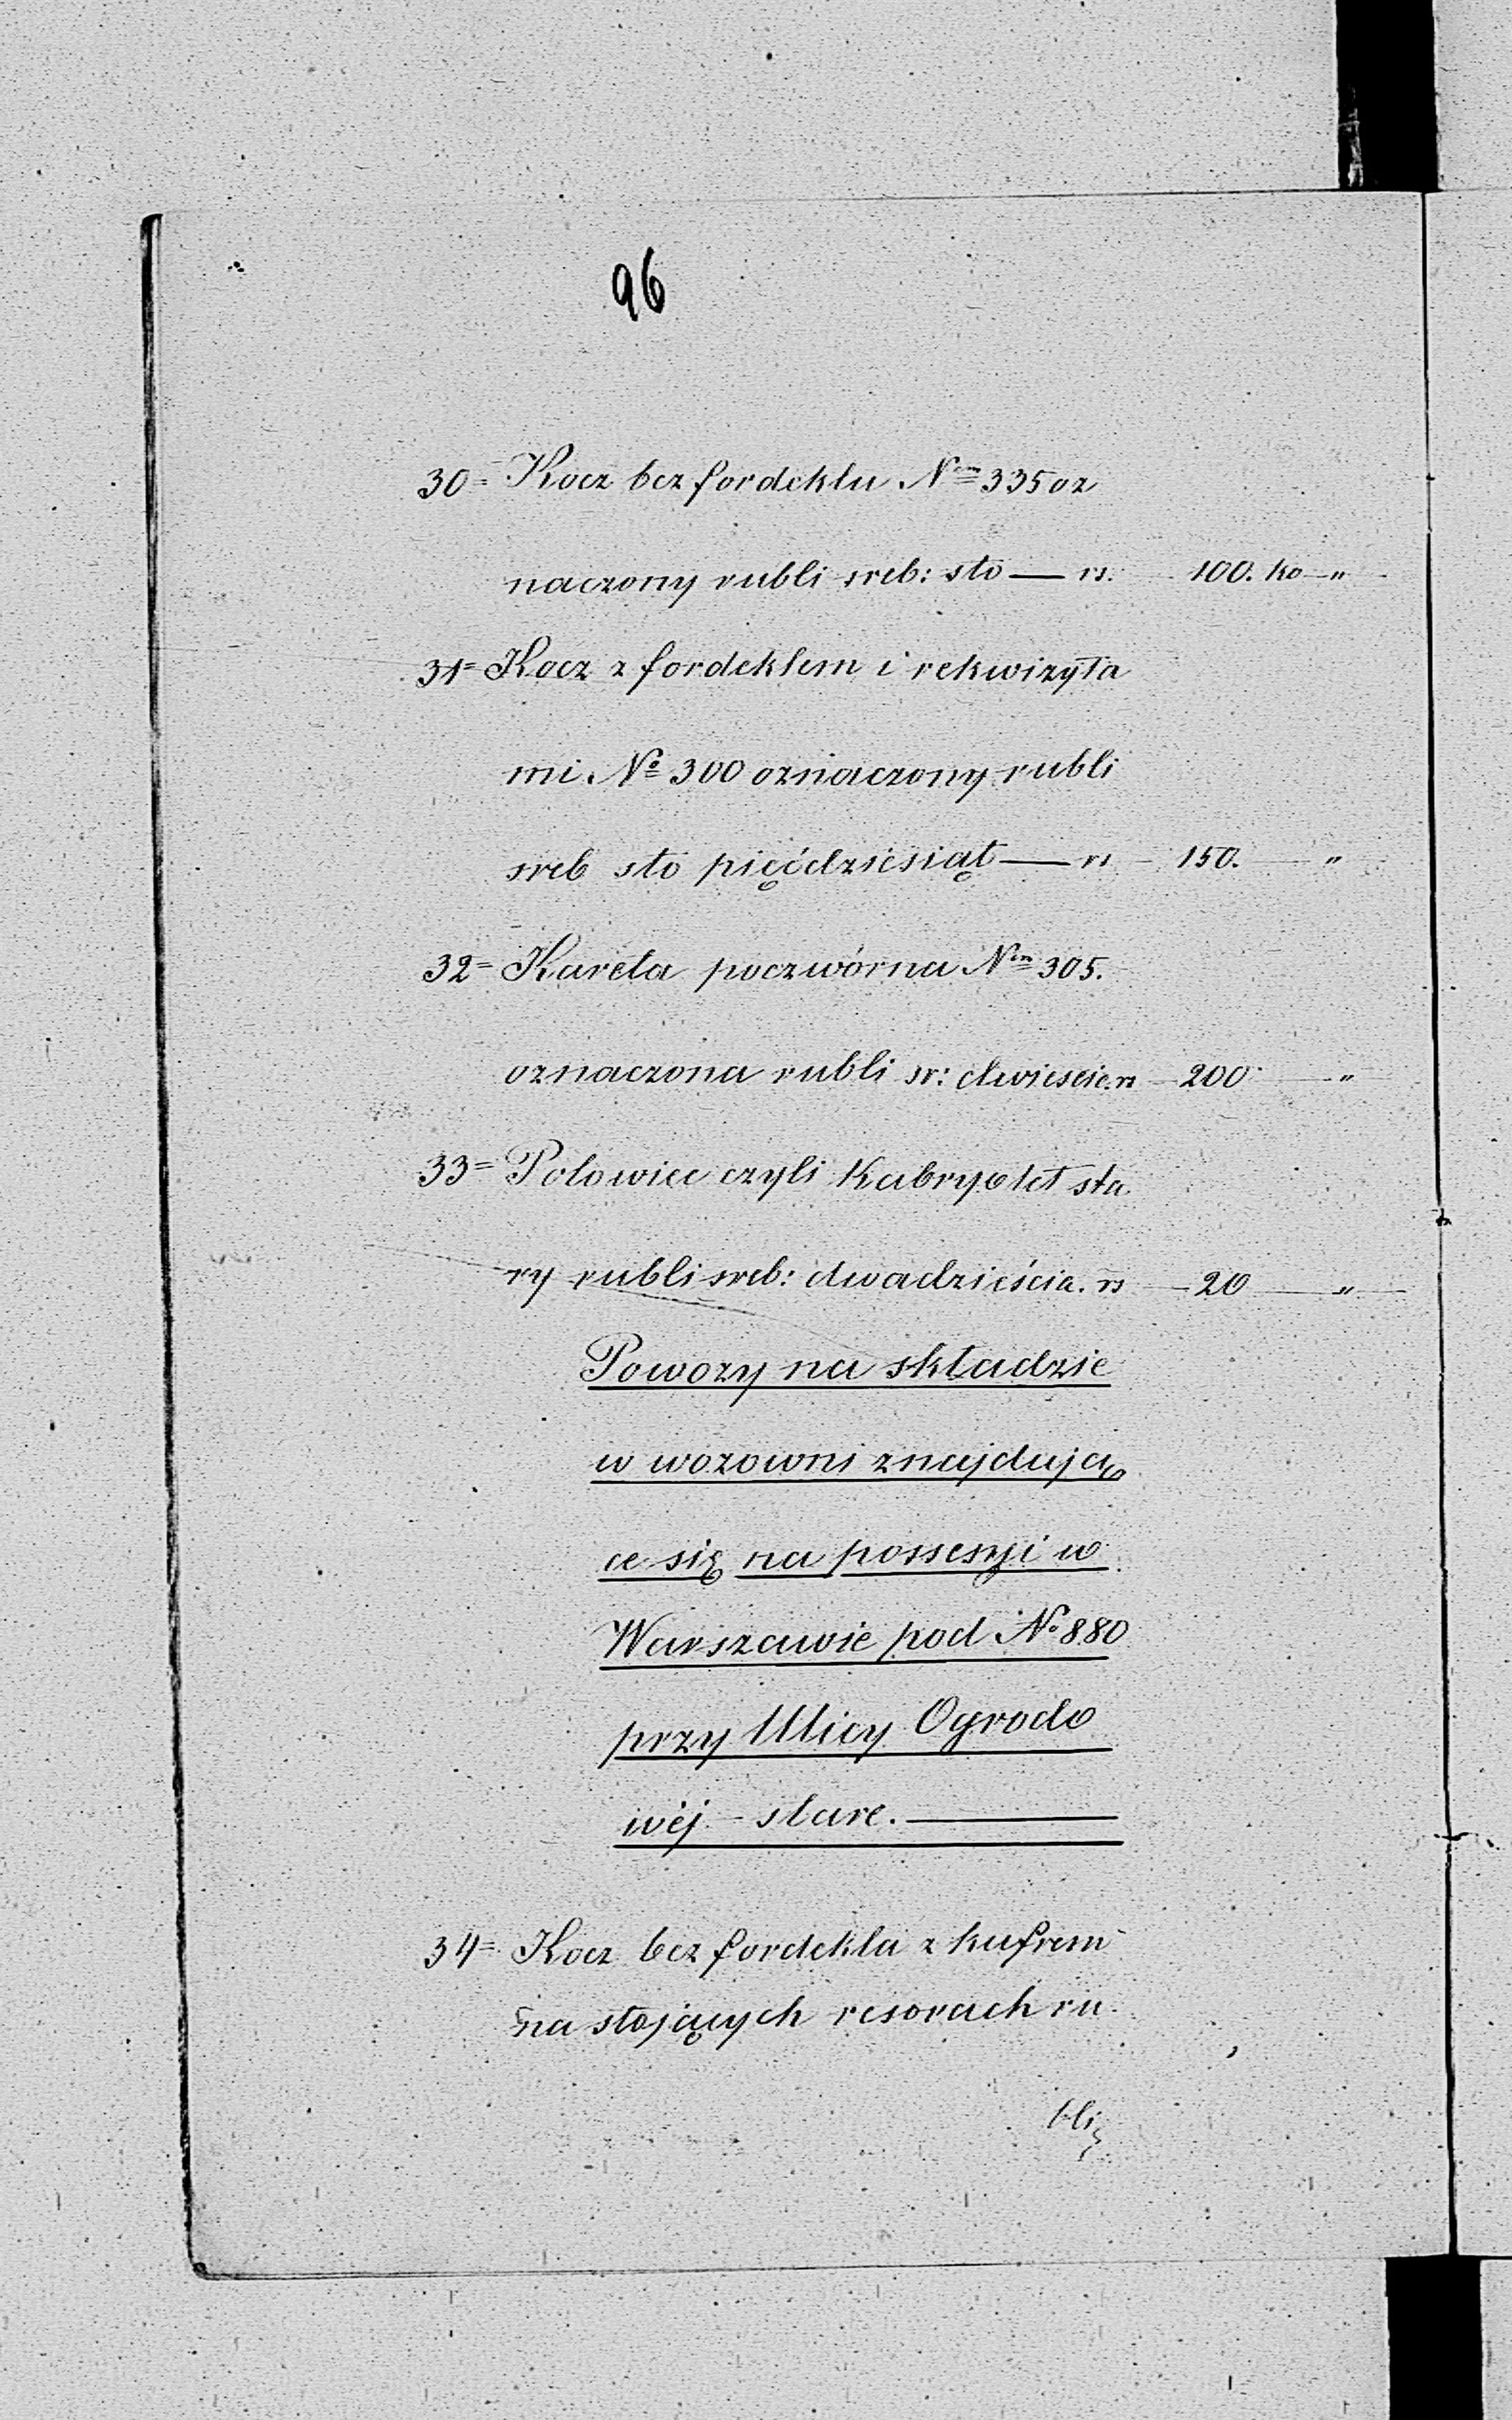 96
30= Kocz bez fordeklu Nem 335 oz
naczony rubli sreb: sto — rs. — 100. ko — „ —
31= Kocz z fordeklem i rekwizyta
mi No 300 oznaczony rubli
sreb sto pięćdziesiąt — rs — 150. — „
32= Kareta poczwórna Nem 305.
oznaczona rubli sr: dwieście. rs — 200 — „
33= Polowiec czyli Kabryolet sta
ry rubli sreb: dwadzieścia. rs — 20 — „ —
Powozy na składzie
w wozowni znajdują
ce się na possesyi w
Warszawie pod No 880
przy Ulicy Ogrodo
wéj – stare. —
34= Kocz bez fordekla z kufrem
na stojących resorach ru
bli